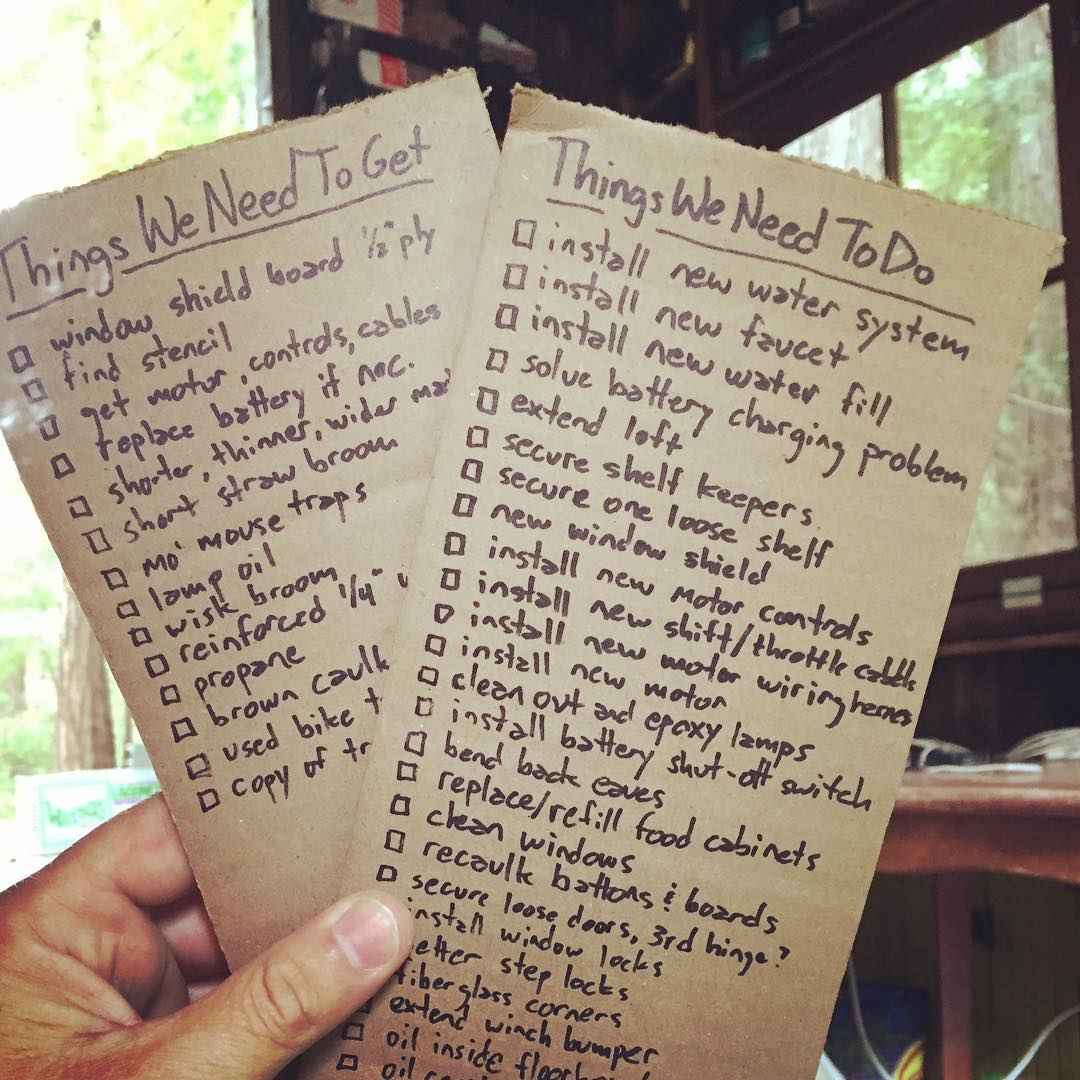 Things We Need To Get
window shield board 1/2" ply
find stencil
get motor, controls, cables
replace battery if nec.
shorter, thinner, wider
short straw broom
mo' mouse traps
lamp oil
wisk broom
reinforced 1/4"
propane
brown caulk
used bike
copy of
Things We Need To Do
install new water system
install new faucet
install new water fill
solve battery charging problem
extend loft
secure shelf keepers
secure one loose shelf
new window shield
install new motor controls
install new shift/throttle cable
install new motor wiring harness
install new motor
clean out and epoxy lamps
install battery shut-off switch
bend back eaves
replace/refill food cabinets
clean windows
recaulk battons & boards
secure loose doors, 3rd hinge?
install window locks
better step locks
fiberglass corners
extend winch bumper
oil inside
oil